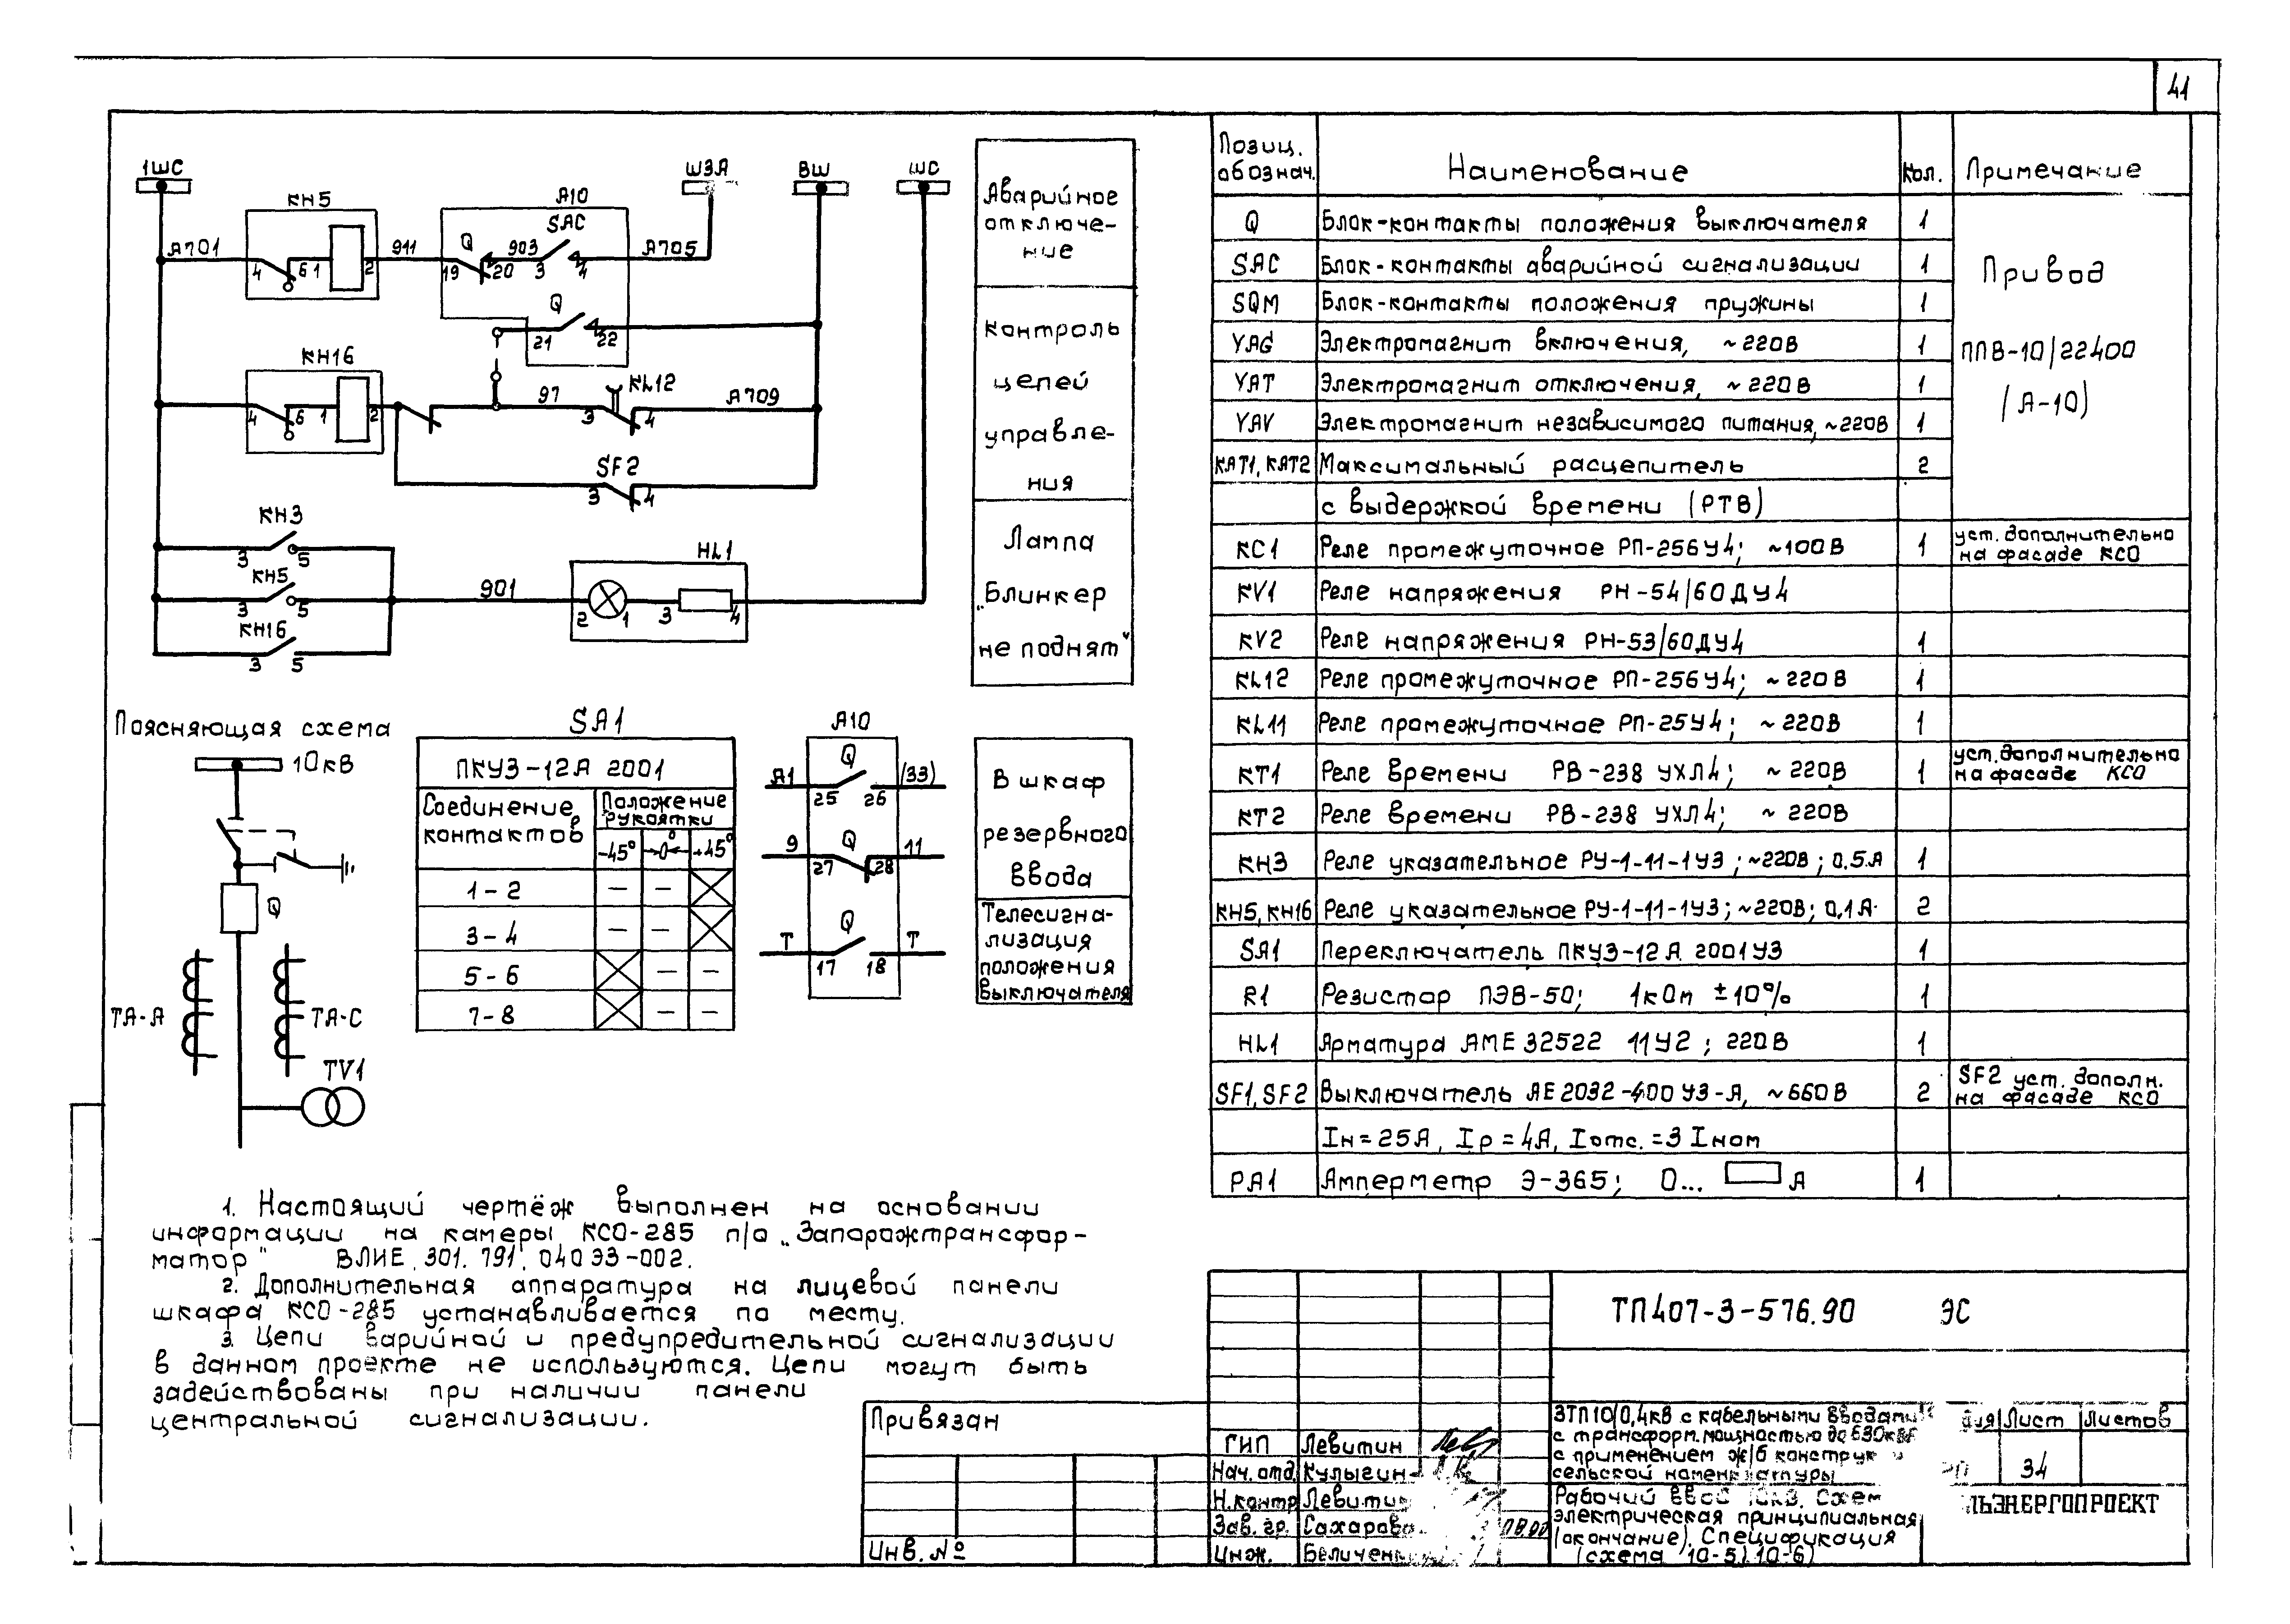 41
1ШС
ШЗА
ВШ
ШС
КН5
А10
SAC
А701
4
6
1
2
911
Q
19
20
903
3
4
А705
Q
21
22
КН16
4
6
1
2
97
KL12
3
4
А709
SF2
3
4
КН3
3
5
КН5
3
5
КН16
3
5
901
HL1
2
1
3
4
Аварийное
отключе-
ние
Контроль
цепей
управле-
ния
Лампа
„Блинкер
не поднят"
Поясняющая схема
10кВ
Q
ТА-А
ТА-С
TV1
SA1
ПКУЗ-12А 2001
Соединение контактов
Положение рукоятки
-45° 0° +45°
1-2 — —
3-4 — —
5-6 — —
7-8 — —
А10
А1 Q (33)
25 26
9 Q 11
27 28
Т Q Т
17 18
В шкаф
резервного
ввода
Телесигна-
лизация
положения
выключателя
1. Настоящий чертёж выполнен на основании
информации на камеры КСО-285 п/о „Запорожтрансфор-
матор" ВЛИЕ.301.791.040ЭЗ-002.
2. Дополнительная аппаратура на лицевой панели
шкафа КСО-285 устанавливается по месту.
3. Цепи варийной и предупредительной сигнализации
в данном проекте не используются. Цепи могут быть
задействованы при наличии панели
центральной сигнализации.
Позиц. обознач. Наименование Кол. Примечание
Q Блок-контакты положения выключателя 1
SAC Блок-контакты аварийной сигнализации 1
SQM Блок-контакты положения пружины 1
YAG Электромагнит включения, ~220В 1
YAT Электромагнит отключения, ~220В 1
YAV Электромагнит независимого питания, ~220В 1
КАТ1, КАТ2 Максимальный расцепитель 2
с выдержкой времени (РТВ)
Привод
ППВ-10/22400
(А-10)
КС1 Реле промежуточное РП-256У4; ~100В 1 уст. дополнительно на фасаде КСО
KV1 Реле напряжения РН-54/60ДУ4
KV2 Реле напряжения РН-53/60ДУ4 1
KL12 Реле промежуточное РП-256У4; ~220В 1
KL11 Реле промежуточное РП-25У4; ~220В 1
КТ1 Реле времени РВ-238 УХЛ4; ~220В 1 уст. дополнительно на фасаде КСО
КТ2 Реле времени РВ-238 УХЛ4; ~220В
КН3 Реле указательное РУ-1-11-1У3; ~220В; 0.5А 1
КН5, КН16 Реле указательное РУ-1-11-1У3; ~220В; 0,1А 2
SA1 Переключатель ПКУЗ-12А 2001У3 1
R1 Резистор ПЭВ-50; 1кОм ±10% 1
HL1 Арматура АМЕ 32522 11У2; 220В 1
SF1, SF2 Выключатель АЕ2032-400У3-А, ~660В 2 SF2 уст. дополн. на фасаде КСО
Iн=25А, Iр=4А, Iотс.=3 Iном
РА1 Амперметр Э-365; 0... А 1
ТП407-3-576.90 ЭС
Привязан
Инв. №
ГИП Левитин
Нач. отд. Кулыгин
Н.контр Левитин
Зав. гр. Сахарова
Инж.
ЗТП10/0,4кВ с кабельными вводами
с трансформ. мощностью до 630кВА
с применением ж/б конструк
сельской номенклатуры
Лист Листов
34
Рабочий ввод 10кВ. Схем
электрическая принципиальная
(окончание). Спецификация
(схема 10-5, 10-6)
ЛЬЭНЕРГОПРОЕКТ